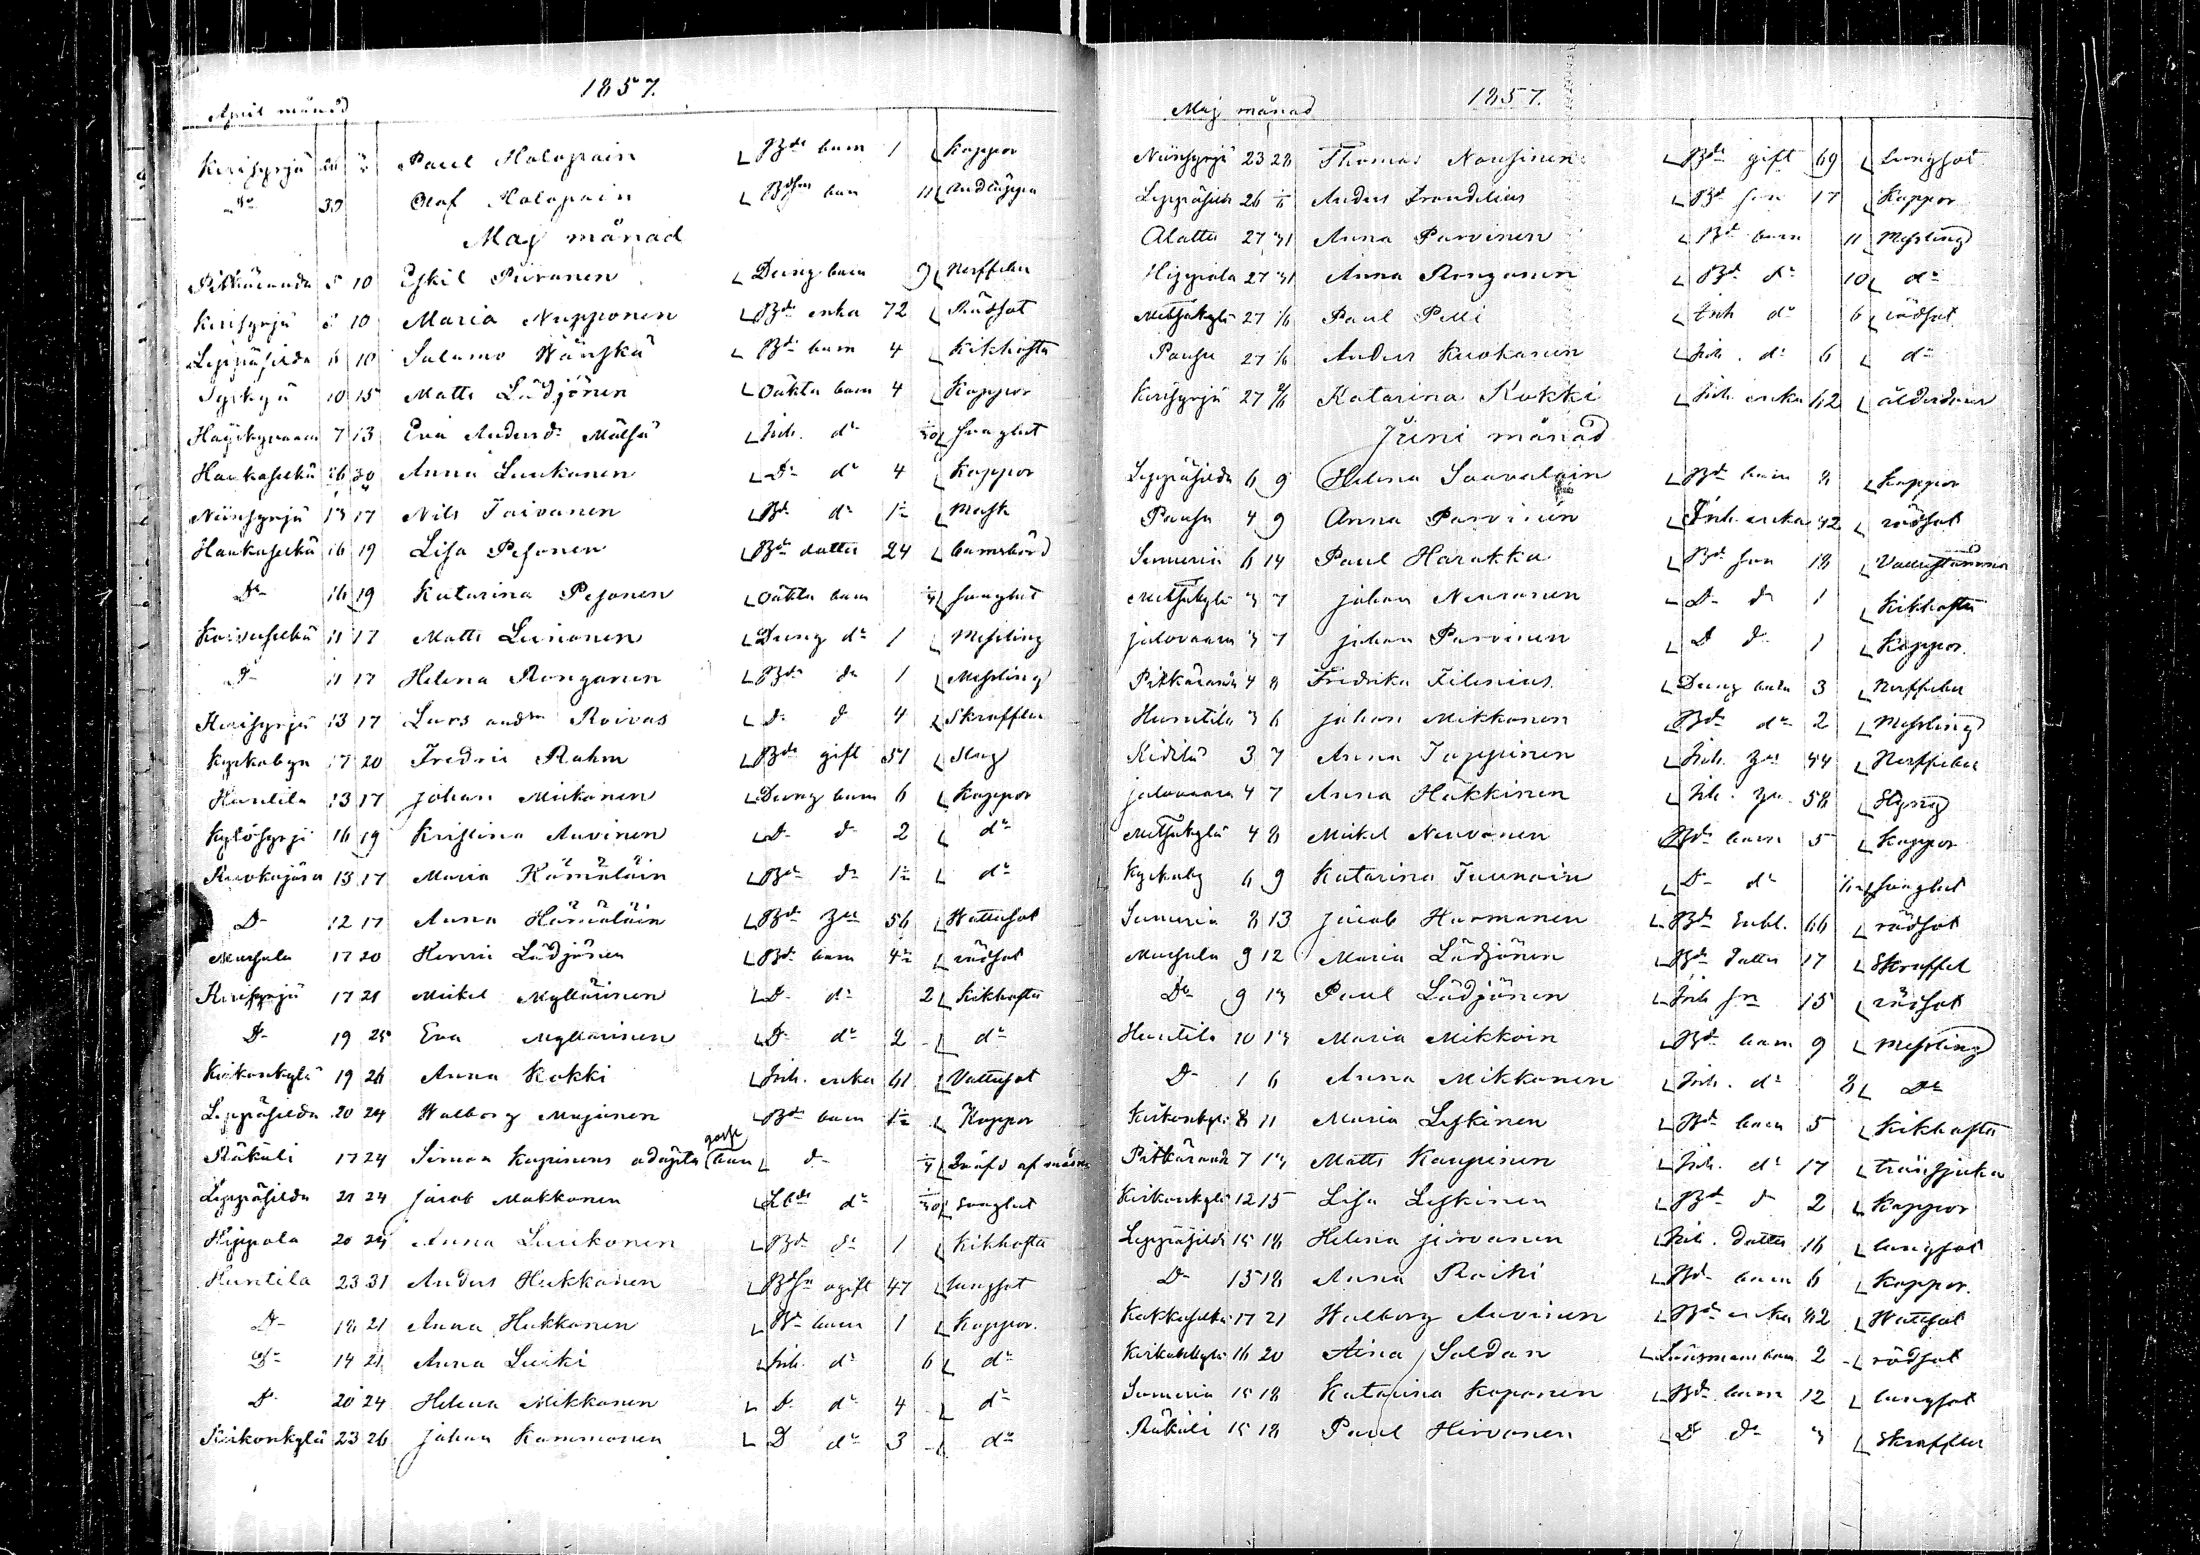 1857.
April månad
Kirisyrjä 26 Paul Holopain Bde barn 1 Koppor
D:o 30 Olof Holopain barn 11
Maj månad
Pitkäranda 5 10 Eskil Piironen Dreng barn 9 Nerffeber
Kirisyrjä 5 10 Maria Nupponen Bde enka 72 Rödsot
Leppäsilda 6 10 Salamo Wänskä Bde barn 4 Kikhosta
Syskyä 10 15 Matts Lädjönen oäkta barn 4 Koppor
7 13 Eva Andersdr Mälsä Inh. do slaglut
Haukaselkä 26 30 Anna Luukonen Do do 4 Koppor
Niinisyrjä 13 17 Nils Toivanen Bde do 1 Mask
Haukaselkä 16 19 Lisa Pesonen Bde dotter 24 barnsbörd
Do 16 19 Katarina Pesonen oäkta barn 1/4 slaglut
Koivuselkä 11 17 Matts Leinonen Dreng do 1 Messling
Do 11 17 Helena Rongonen Bde do 1 Messling
Kirisyrjä 13 17 Lars Roivas Do do 4 Skroffler
Kyrkobyn 17 20 Fredric Rahm Bde gift 51 Slag
Huntila 13 17 Johan Mickonen Dreng barn 6 Koppor
Kylösyrjä 16 19 Kristina Auvinen Do do 2 do
Ruokojärvi 13 17 Maria Hämäläin Bde do 1 do
Do 12 17 Anna Hämäläin Bde 56 Wattusot
Mursula 17 20 Henric Lädjönen Bde barn 4 rödsot
Kirisyrjä 17 21 Mickel Myllärinen Do do 2 Kikhosta
Do 19 25 Eva Myllärinen Do do 2 do
Kirkonkylä 19 26 Anna Kokki Inh. enka 61 Vattusot
Leppäsilda 20 24 Walborg Majunen Bde barn 1 Koppor
Räkäli 17 24 Simon Kupiainens adopter gosse barn do 1/4 qväfd af
Leppäsilda 21 24 Jacob Makkonen do slaglut
Hippola 20 24 Anna Luukonen Bde do 1 Kikhosta
Huntila 23 31 Anders Hukkanen ogift 47 lungsot
Do 18 21 Anna Hukkanen Bde barn 1 Koppor.
Do 14 21 Anna Luiki Inh. do 6 do
Do 20 24 Helena Mikkonen Do do 4 do
Kirkonkylä 23 26 Johan Kommonen Do do 3 do
1857.
Maj månad
Niinisyrjä 23 28 Thomas Nousinen Bde gift 69 Lungsot
Leppäsilda 26 1/6 Anders Frondelius Bde son 17 Koppor
Alattu 27 31 Anna Parvinen Bde barn 11 Messling
Hippola 27 31 Anna Rongonen Bde do 10 do
Metsäkylä 27 1/6 Paul Pelli Inh do 6 rödsot
Pausu 27 1/6 Anders Kuokanen Inh. do 6 do
Kirisyrjä 27 2/6 Katarina Kokki Inh. enka 62 ålderdom
Juni månad
Leppäsilda 6 9 Helena Saavalain Bde barn 8 Koppor
Pausu 4 9 Anna Parvinen Inh. enka 42 rödsot
Sumeria 6 14 Paul Harakka Bde son 18
Metsäkylä 3 7 Johan Neuvonen Do do 1 Kikhosta
Jalovaara 3 7 Johan Parvinen Do do 1 Koppor.
Pitkäranda 4 8 Fredrika Filenius Dreng barn 3 Nerffeber
Huntila 3 6 Johan Mikkonen Bde do 2 Messling
Kidilä 3 7 Anna Toppinen Inh. 44 Nerffeber
Jalovaara 4 7 Anna Häkkinen Inh. 58 Styng
Metsäkylä 4 8 Mickel Neuvonen Bde barn 5 Koppor
Kyrkoby 6 9 Katarina Juunain Do do slaglut
Sumeria 8 13 Jacob Hurmanen Bde Enkl. 66 rödsot
Mursula 9 12 Maria Lädjönen Bde dotter 17 Skroffel
Do 9 13 Paul Lädjönen Inh son 15 rödsot
Huntila 10 13 Maria Mikkoin Bde barn 9 Messling
Do 1 6 Anna Mikkonen Inh. do 8 Do
Kirkonkylä 8 11 Maria Leskinen Bde barn 5 Kikhosta
Pitkäranda 7 13 Matts Kaupinen Inh. do 17 tränsjuka
Kirkonkylä 12 15 Lisa Leskinen Bde do 2 Koppor
Leppäsilda 15 18 Helena Jirvonen Inh. dotter 16 lungsot
Do 15 18 Anna Raiki Bde barn 6 Koppor.
Kokkoselkä 17 21 Walborg Auvinen Bde enka 42 Wattsot
Kirkonkylä 16 20 Aina Soldan Länsmans barn 2 rödsot
Sumeria 15 18 Katarina Koponen Bde barn 12 lungsot
Räkäli 15 18 Paul Hirvonen Do do 3 Skroffler